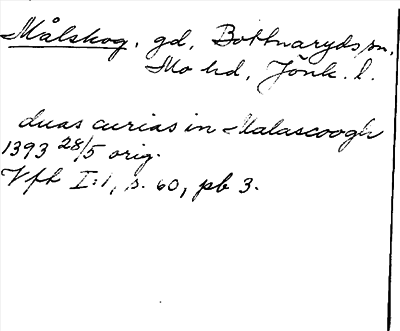 Målskog, gd, Bottnaryds sn,
Mo hd, Jönk. l.
duas curias in Malascoogh
1393 28/5 orig.
Vfk I:1, s. 60, pb 3.